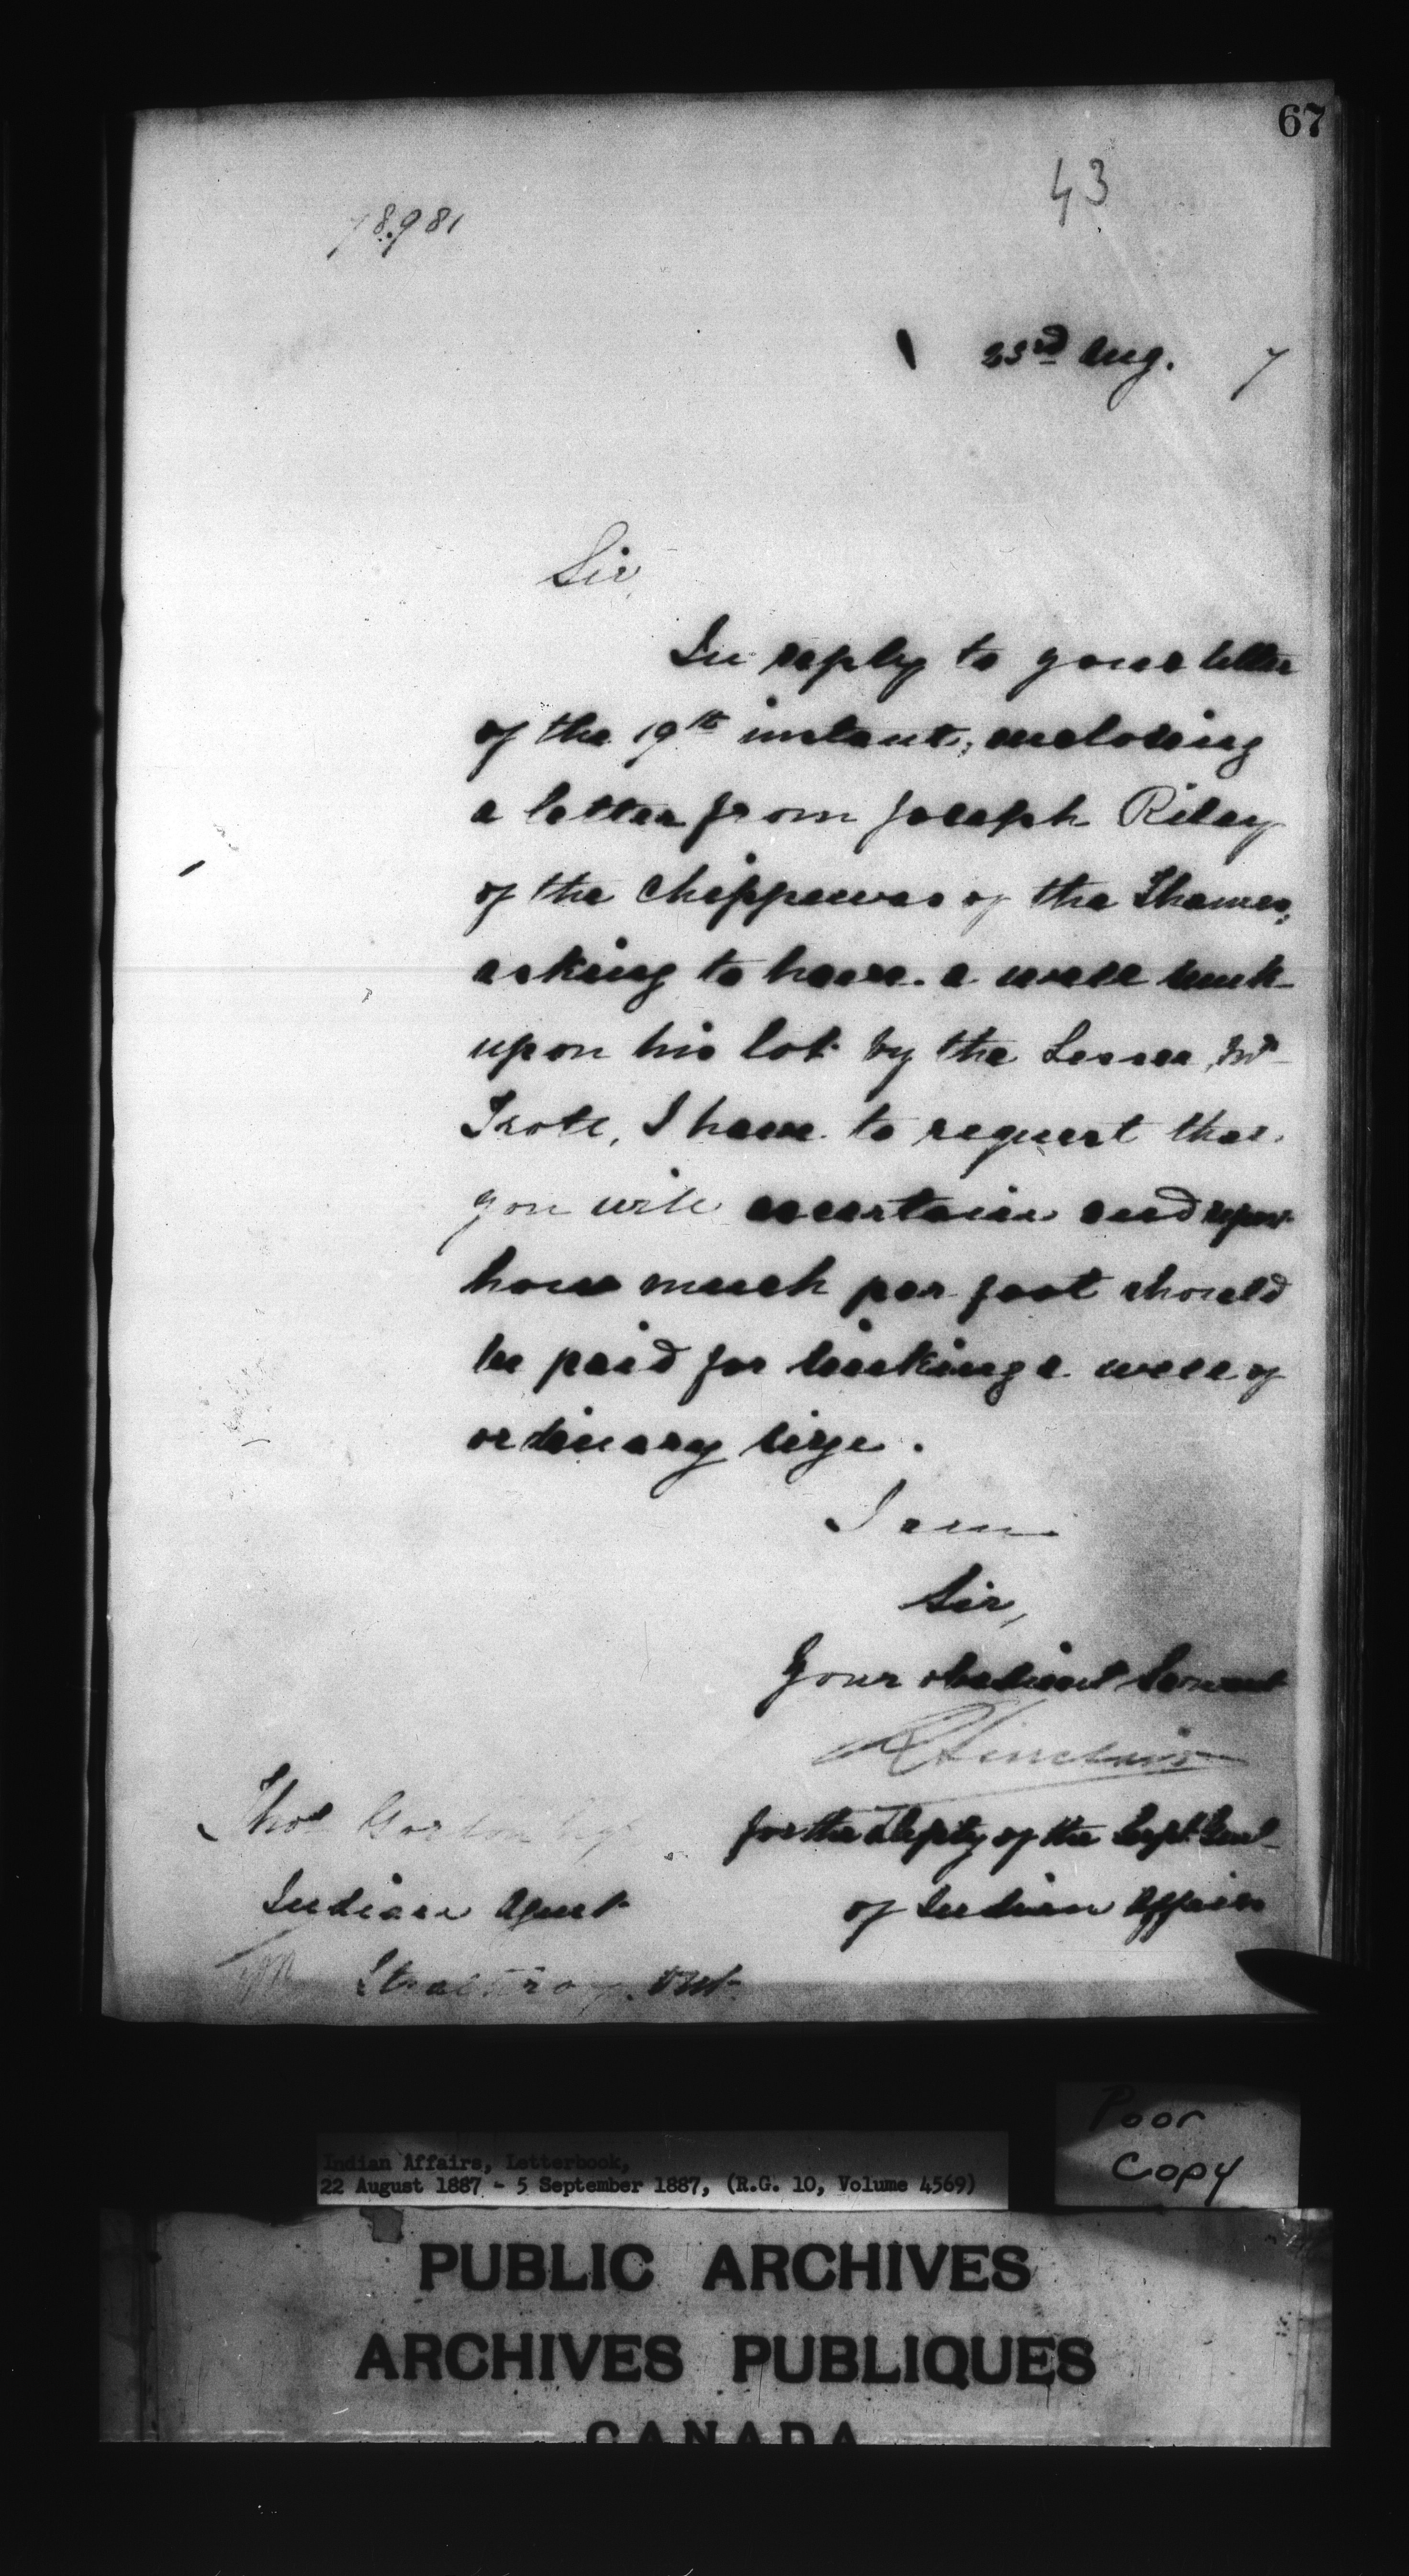 67
43
78.981
23rd Aug. 7
Sir,
In reply to your letter
of the 19th instant, enclosing
a letter from Joseph Riley
of the Chippewas of the Thames,
asking to have a well sunk
upon his lot by the Lessee, Mr
Trott, I have to request that
you will ascertain and report
how much per foot should
be paid for sinking a well of
ordinary size.
I am
Sir,
Your obedient Servant
R Sinclair
for the Deputy of the Supt. Genl
of Indian Affairs
Thos Gordon Esq
Indian Agent
Strathroy. Ont.
Poor
Copy
Indian Affairs, Letterbook,
22 August 1887 - 5 September 1887, (R.G. 10, Volume 4569)
PUBLIC ARCHIVES
ARCHIVES PUBLIQUES
CANADA